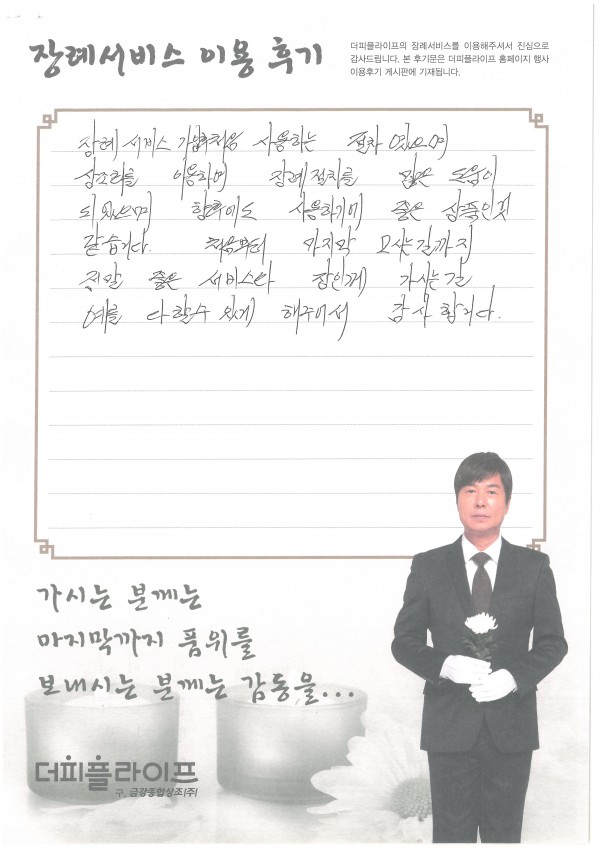 장례서비스 이용 후기
더피플라이프의 장례서비스를 이용해주셔서 진심으로
감사드립니다. 본 후기문은 더피플라이프 홈페이지 행사
이용후기 게시판에 기재됩니다.
장례 서비스 가입후처음 사용하는 절차 였으며
상조회를 이용하여 장례절차를 많은 도움이
되었으며 향후에도 사용하기에 좋은 상품인것
같습니다. 처음부터 마지막 모시는길까지
정말 좋은 서비스라 장인께 가시는길
예를 다할수 있게 해주어서 감사 합니다.
가시는 분께는
마지막까지 품위를
보내시는 분께는 감동을...
더피플라이프
구. 금강종합상조(주)